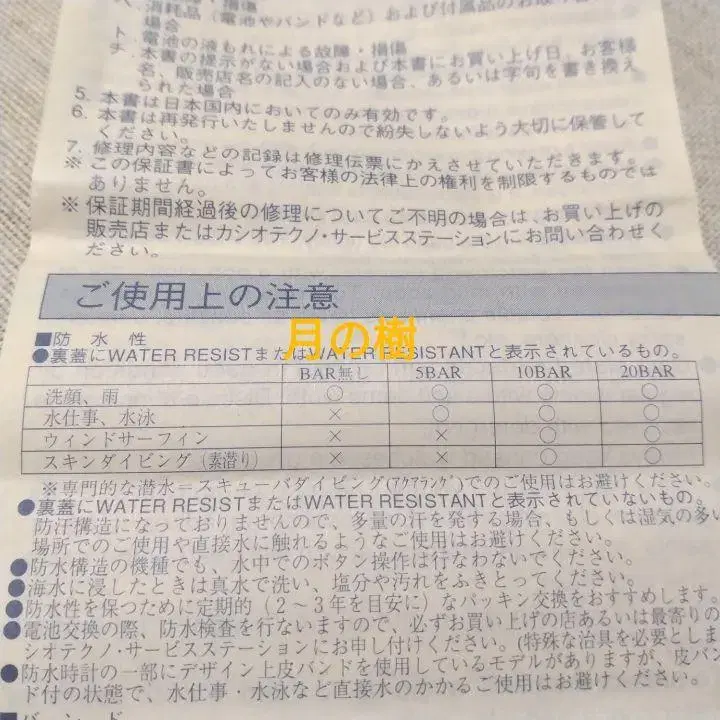 ヘ. 消耗品（電池やバンドなど）および付属品のお取り
場合
ト. 電池の液もれによる故障・損傷
チ. 本書の提示がない場合および本書にお買い上げ日、お客様
名、販売店名の記入のない場合、あるいは字句を書き換え
られた場合
5. 本書は日本国内においてのみ有効です。
6. 本書は再発行いたしませんので紛失しないよう大切に保管して
ください。
7. 修理内容などの記録は修理伝票にかえさせていただきます。
※ この保証書によってお客様の法律上の権利を制限するものでは
ありません。
※ 保証期間経過後の修理についてご不明の場合は、お買い上げの
販売店またはカシオテクノ・サービスステーションにお問い合わせく
ださい。
ご使用上の注意
■防 水 性
月の樹
●裏蓋にWATER RESISTまたはWATER RESISTANTと表示されているもの。
BAR無し 5BAR 10BAR 20BAR
洗顔、雨 ○ ○ ○ ○
水仕事、水泳 × ○ ○ ○
ウィンドサーフィン × × ○ ○
スキンダイビング（素潜り） × × ○ ○
※専門的な潜水＝スキューバダイビング(ｱｸｱﾗﾝｸﾞ)でのご使用はお避けください。
●裏蓋にWATER RESISTまたはWATER RESISTANTと表示されていないもの。
防汗構造になっておりませんので、多量の汗を発する場合、もしくは湿気の多い
場所でのご使用や直接水に触れるようなご使用はお避けください。
●防水構造の機種でも、水中でのボタン操作は行なわないでください。
●海水に浸したときは真水で洗い、塩分や汚れをふきとってください。
●防水性を保つために定期的（２～３年を目安に）なパッキン交換をおすすめします。
●電池交換の際、防水検査を行ないますので、必ずお買い上げの店あるいは最寄りの
シオテクノ・サービスステーションにお申し付けください。(特殊な治具を必要としま
●防水時計の一部にデザイン上皮バンドを使用しているモデルがありますが、皮バン
ド付の状態で、水仕事・水泳など直接水のかかるご使用はお避けください。